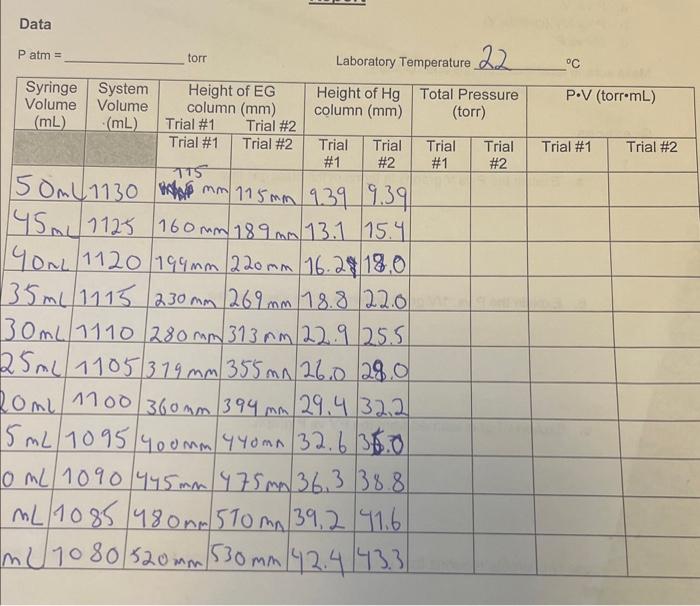 Report
Data
P atm = ________ torr Laboratory Temperature 22 °C
Syringe Volume (mL) System Volume (mL) Height of EG column (mm) Trial #1 Trial #2 Height of Hg column (mm) Total Pressure (torr) P•V (torr•mL)
Trial #1 Trial #2 Trial #1 Trial #2 Trial #1 Trial #2 Trial #1 Trial #2
50mL 1130 115 mm 115mm 9.39 9.39
45mL 1125 160mm 189mm 13.1 15.4
40mL 1120 199mm 220mm 16.2 18.0
35mL 1115 230mm 269mm 18.8 22.0
30mL 1110 280mm 313mm 22.9 25.5
25mL 1105 319mm 355mm 26.0 29.0
20mL 1100 360mm 394mm 29.4 32.2
5mL 1095 400mm 440mm 32.6 36.0
0mL 1090 445mm 475mm 36.3 38.8
mL 1085 480mm 510mm 39.2 41.6
mL 1080 520mm 530mm 42.4 43.3